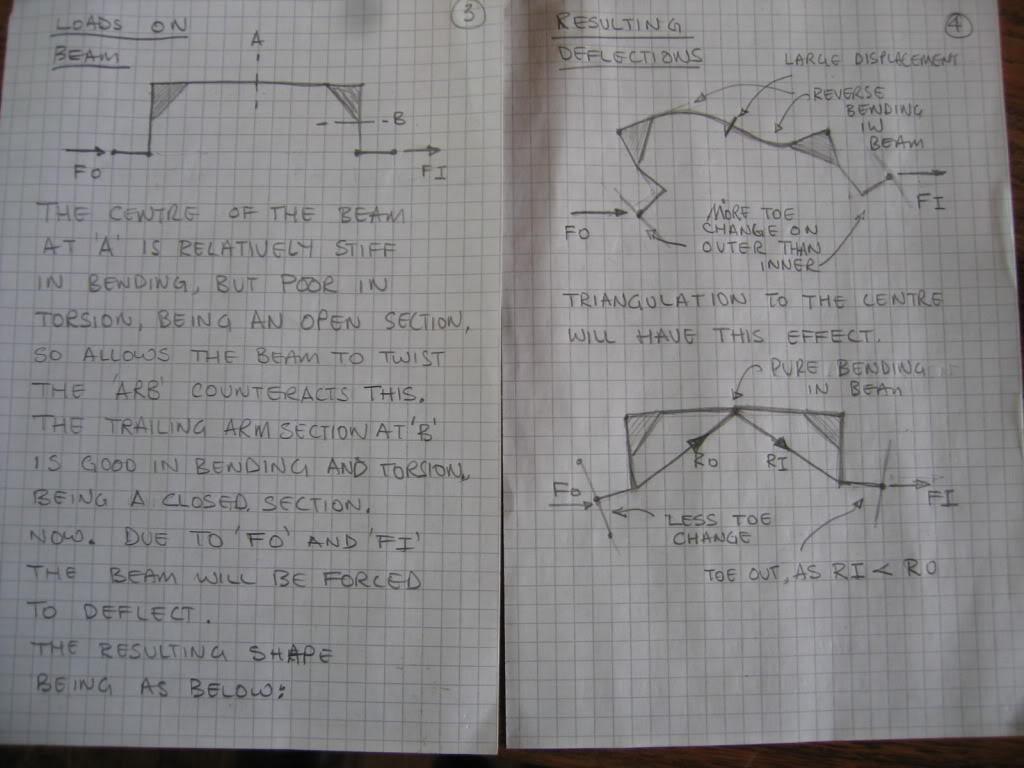 3
LOADS ON
BEAM
A
B
FO
FI
THE CENTRE OF THE BEAM
AT 'A' IS RELATIVELY STIFF
IN BENDING, BUT POOR IN
TORSION, BEING AN OPEN SECTION,
SO ALLOWS THE BEAM TO TWIST
THE 'ARB' COUNTERACTS THIS.
THE TRAILING ARM SECTION AT 'B'
IS GOOD IN BENDING AND TORSION,
BEING A CLOSED SECTION.
NOW. DUE TO 'FO' AND 'FI'
THE BEAM WILL BE FORCED
TO DEFLECT.
THE RESULTING SHAPE
BEING AS BELOW:
4
RESULTING
DEFLECTIONS
LARGE DISPLACEMENT
REVERSE
BENDING
IN
BEAM
FI
FO
MORE TOE
CHANGE ON
OUTER THAN
INNER
TRIANGULATION TO THE CENTRE
WILL HAVE THIS EFFECT.
PURE BENDING
IN BEAM
RO
RI
FO
FI
LESS TOE
CHANGE
TOE OUT, AS RI < RO